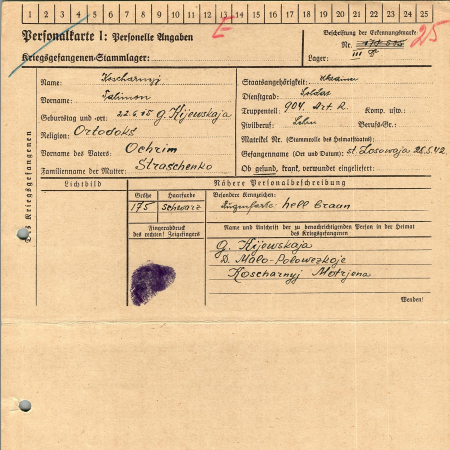 1 2 3 4 5 6 7 8 9 10 11 12 13 14 15 16 17 18 19 20 21 22 23 24 25
E
25
Personalkarte I: Personelle Angaben
Beschriftung der Erkennungsmarke
Nr.
Kriegsgefangenen-Stammlager:
Lager:
Des Kriegsgefangenen
Name: Koscharnyj
Vorname:
Geburtstag und -ort: 22.6.15 g. Kijewskaja
Religion: Ortodoks
Vorname des Vaters: Ochrim
Familienname der Mutter: Straschenko
Staatsangehörigkeit: Ukraine
Dienstgrad: Soldat
Truppenteil: 904. Art. R. Komp. usw.:
Zivilberuf: Berufs-Gr.:
Matrikel Nr. (Stammrolle des Heimatstaates):
Gefangennahme (Ort und Datum): st. Losowaja 28.5.42
Ob gesund, krank, verwundet eingeliefert:
Lichtbild
Nähere Personalbeschreibung
Größe Haarfarbe Besondere Kennzeichen:
175 schwarz Augenfarbe hell braun
Fingerabdruck
des rechten! Zeigefingers
Name und Anschrift der zu benachrichtigenden Person in der Heimat
des Kriegsgefangenen
g. Kijewskaja
D. Malo-Polowezkoje
Koscharnyj Motrjena
Wenden!